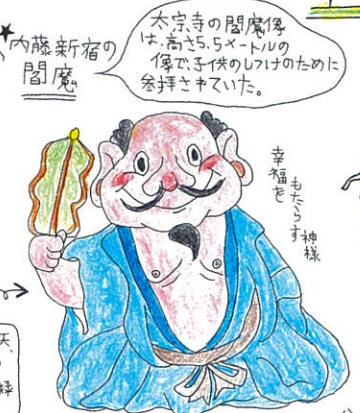 内藤新宿の
閻魔
太宗寺の閻魔像
は、高さ5.5メートルの
像で、子供のしつけのために
参拝されていた。
幸福を
もたらす
神様
天、
縁